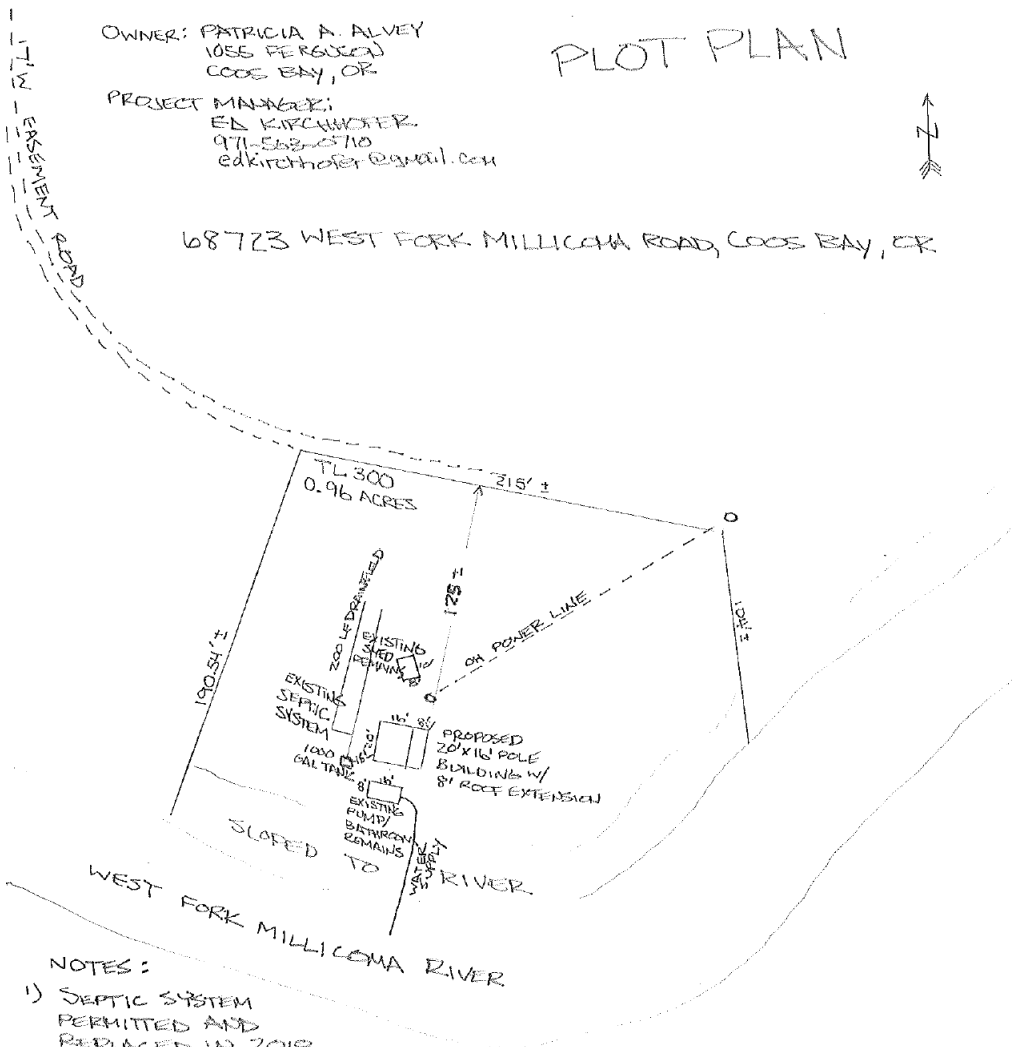 OWNER: PATRICIA A. ALVEY
1055 FERGUSON
COOS BAY, OR
PLOT PLAN
PROJECT MANAGER:
ED KIRCHHOFER
971-563-0710
edkirchhofer@gmail.com
N
17' W EASEMENT ROAD
68723 WEST FORK MILLICOMA ROAD, COOS BAY, OR
TL 300
0.96 ACRES
215' ±
125 ±
104' ±
190.54' ±
200 LF DRAINFIELD
EXISTING
SHED
REMAINS
OH POWER LINE
EXISTING
SEPTIC
SYSTEM
1000
GAL TANK
16' 8'
20'
PROPOSED
20' X 16' POLE
BUILDING W/
8' ROOF EXTENSION
16'
8'
EXISTING
PUMP/
BATHROOM
REMAINS
WATER
SUPPLY
SLOPED TO RIVER
WEST FORK MILLICOMA RIVER
NOTES:
1) SEPTIC SYSTEM
PERMITTED AND
REPLACED IN 2018